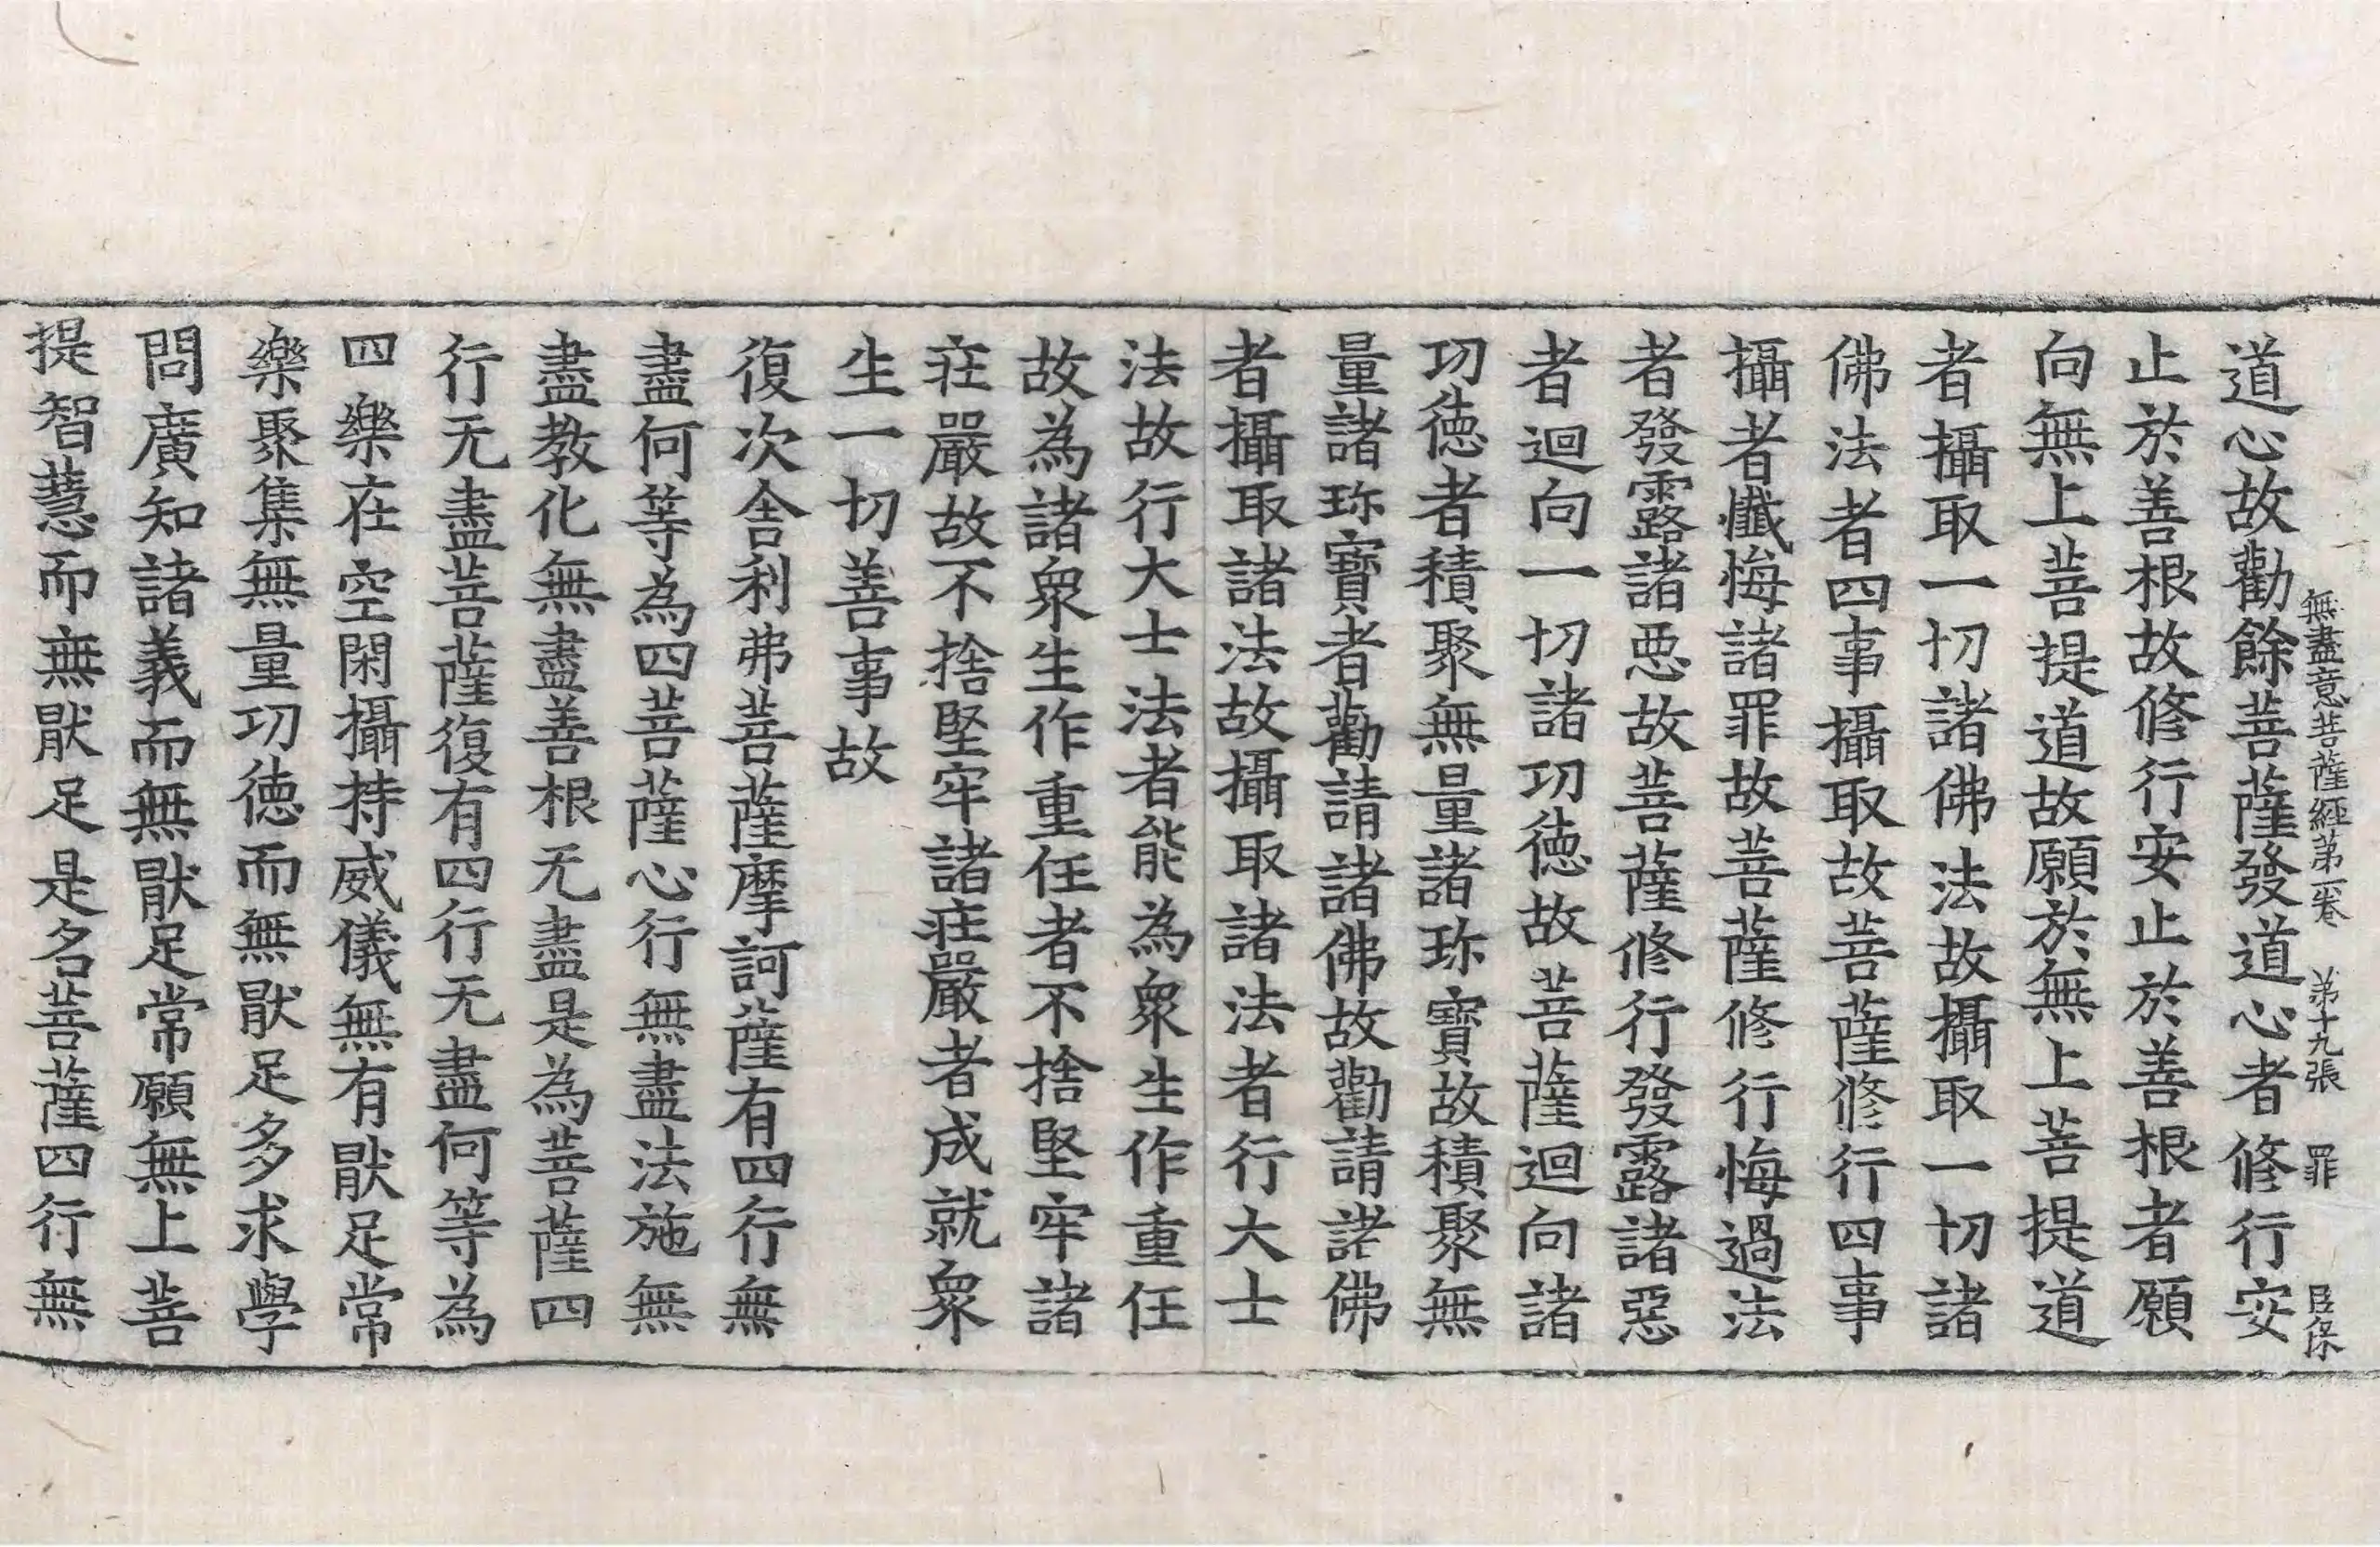 無盡意菩薩經第一卷 第十九張 罪 臣保
道心故勸餘菩薩發道心者修行安
止於善根故修行安止於善根者願
向無上菩提道故願於無上菩提道
者攝取一切諸佛法故攝取一切諸
佛法者四事攝取故菩薩修行四事
攝者懺悔諸罪故菩薩修行悔過法
者發露諸惡故菩薩修行發露諸惡
者迴向一切諸功德故菩薩迴向諸
功德者積聚無量諸珎寶故積聚無
量諸珎寶者勸請諸佛故勸請諸佛
者攝取諸法故攝取諸法者行大士
法故行大士法者能為衆生作重任
故為諸衆生作重任者不捨堅牢諸
莊嚴故不捨堅牢諸莊嚴者成就衆
生一切善事故
復次舍利弗菩薩摩訶薩有四行無
盡何等為四菩薩心行無盡法施無
盡教化無盡善根无盡是為菩薩四
行无盡菩薩復有四行无盡何等為
四樂在空閑攝持威儀無有猒足常
樂聚集無量功德而無猒足多求學
問廣知諸義而無猒足常願無上菩
提智慧而無猒足是名菩薩四行無